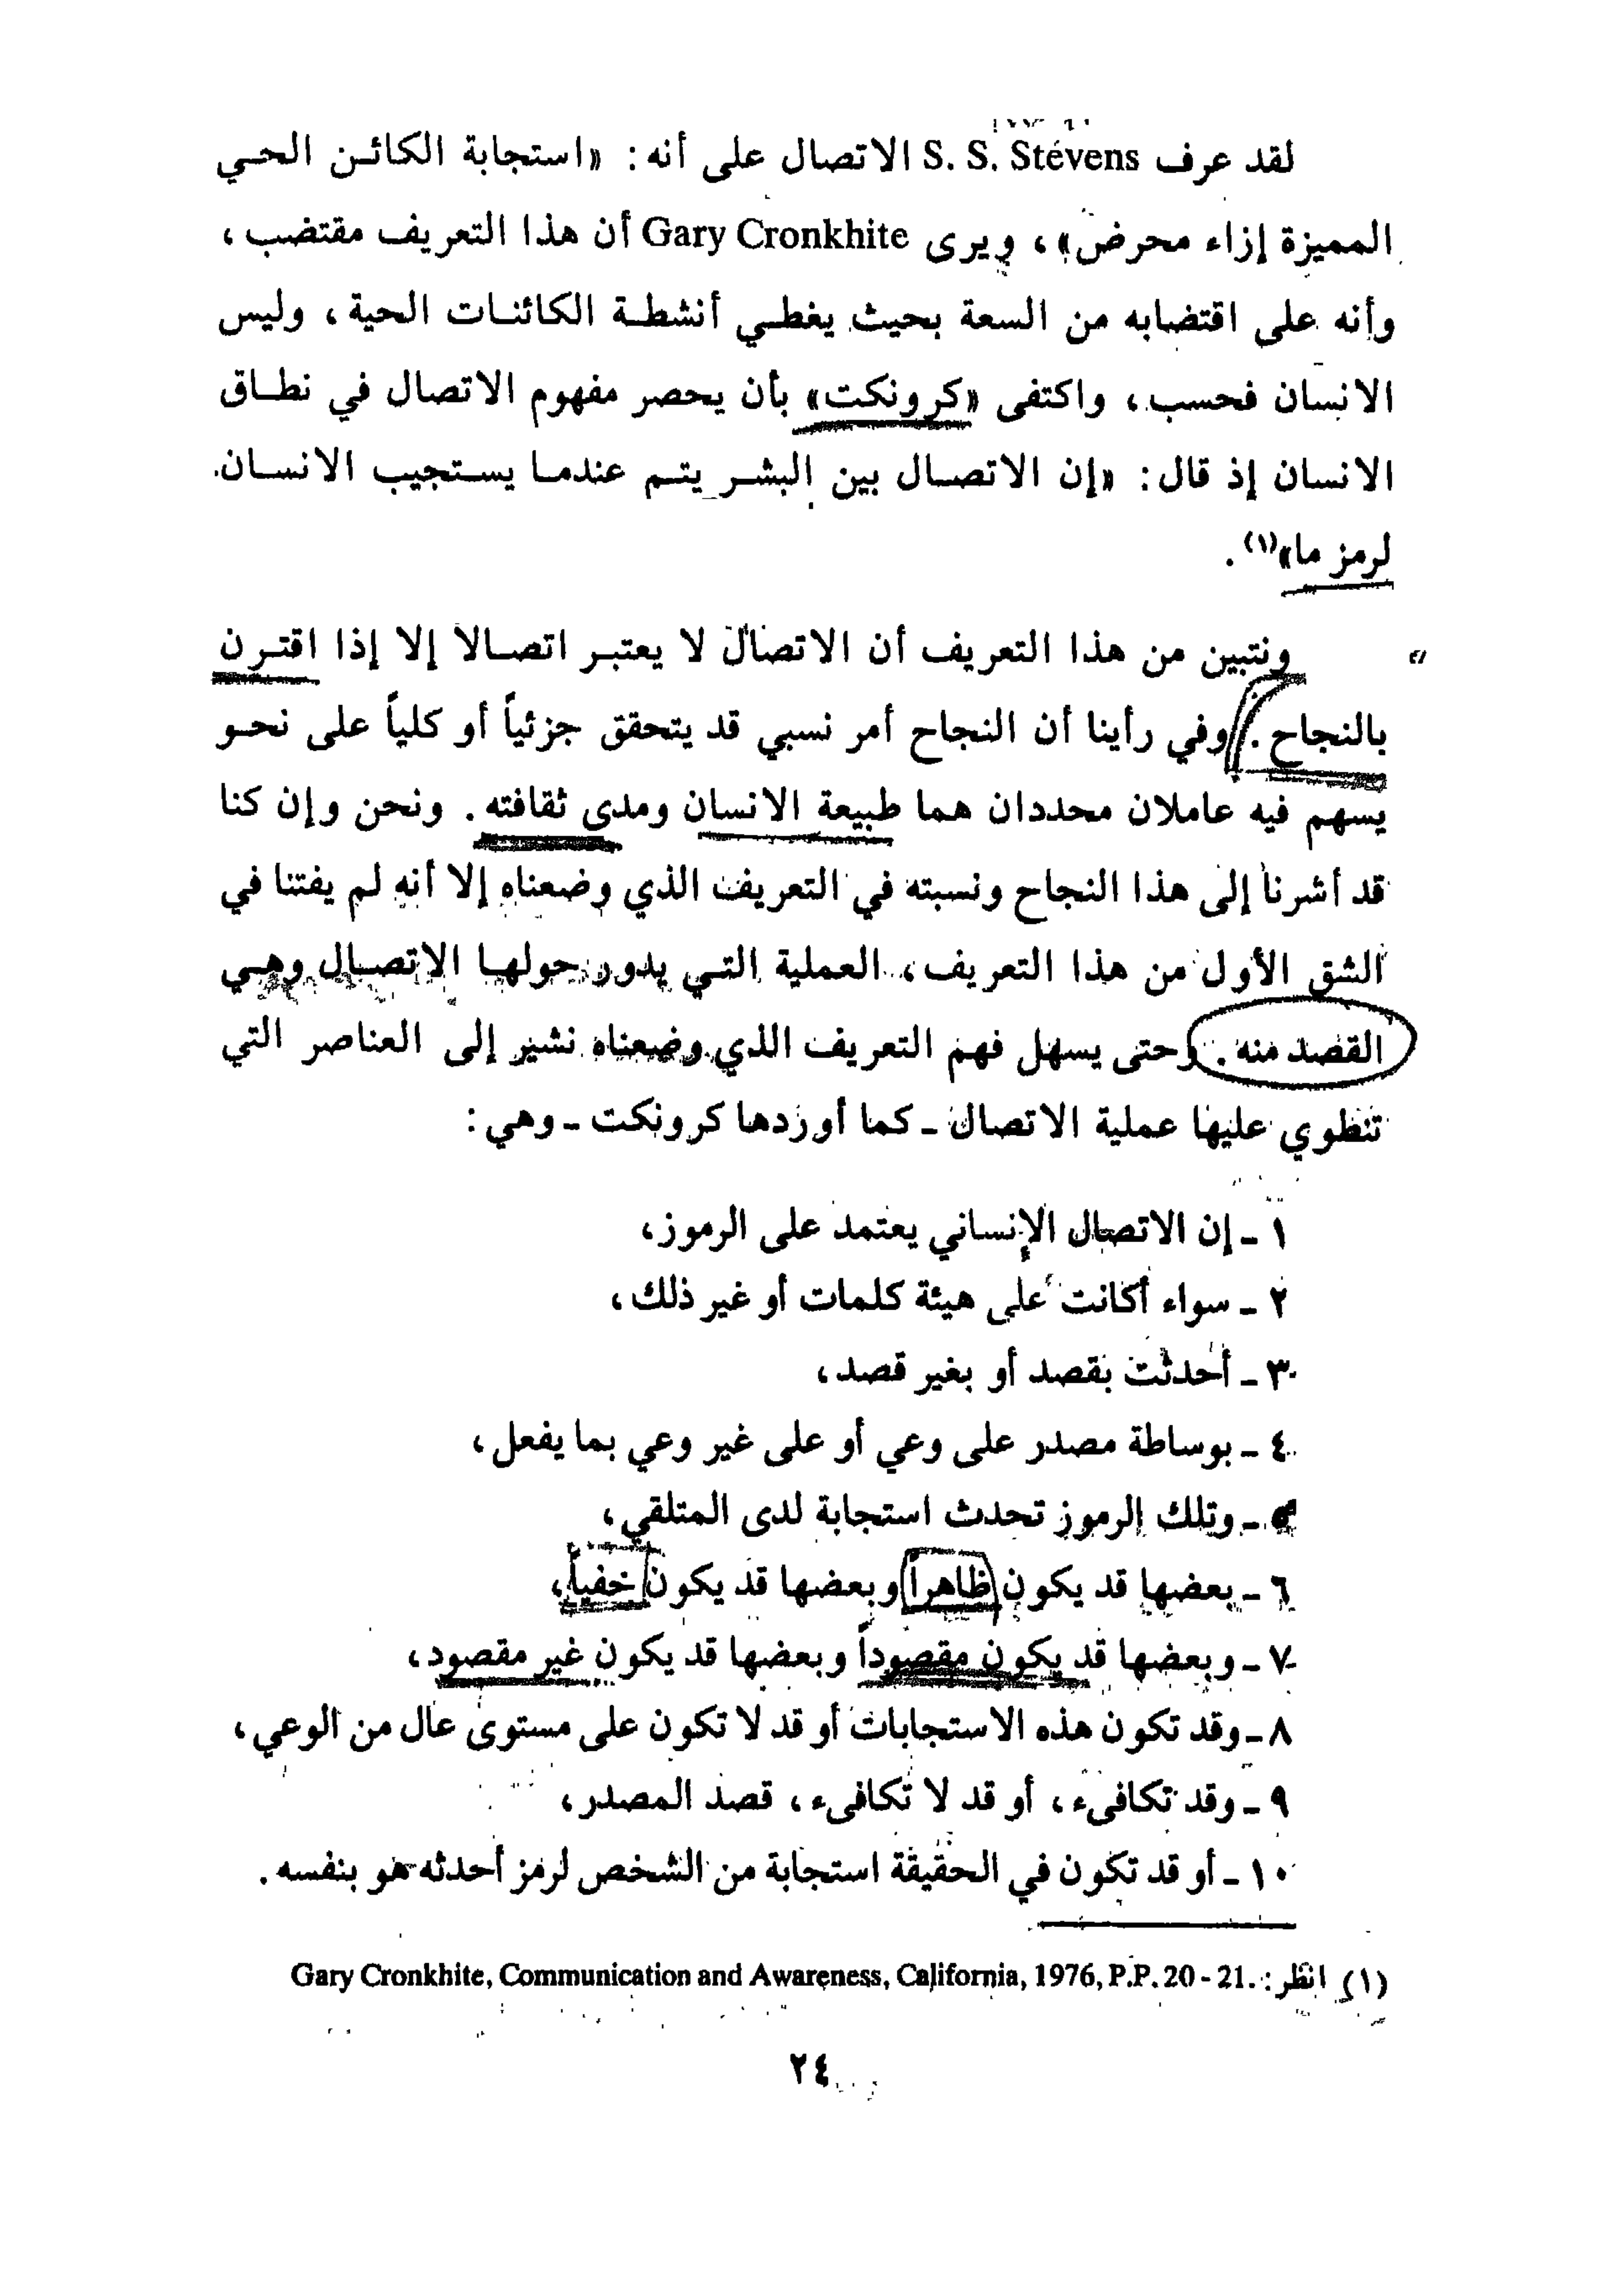 لقد عرف S. S. Stevens الاتصال على أنه: «استجابة الكائن الحي
المميزة إزاء محرض»، ويرى Gary Cronkhite أن هذا التعريف مقتضب،
وأنه على اقتضابه من السعة بحيث يغطي أنشطة الكائنات الحية، وليس
الانسان فحسب، واكتفى «كرونكت» بأن يحصر مفهوم الاتصال في نطاق
الانسان إذ قال: «إن الاتصال بين البشر يتم عندما يستجيب الانسان
لرمز ما»(١).
ونتبين من هذا التعريف أن الاتصال لا يعتبر اتصالاً إلا إذا اقترن
بالنجاح. وفي رأينا أن النجاح أمر نسبي قد يتحقق جزئياً أو كلياً على نحو
يسهم فيه عاملان محددان هما طبيعة الانسان ومدى ثقافته. ونحن وإن كنا
قد أشرنا إلى هذا النجاح ونسبته في التعريف الذي وضعناه إلا أنه لم يفتنا في
الشق الأول من هذا التعريف، العملية التي يدور حولها الاتصال وهي
القصد منه. وحتى يسهل فهم التعريف الذي وضعناه نشير إلى العناصر التي
تنطوي عليها عملية الاتصال ـ كما أوردها كرونكت ـ وهي:
١ ـ إن الاتصال الإنساني يعتمد على الرموز،
٢ ـ سواء أكانت على هيئة كلمات أو غير ذلك،
٣ ـ أحدثت بقصد أو بغير قصد،
٤ ـ بوساطة مصدر على وعي أو على غير وعي بما يفعل،
٥ ـ وتلك الرموز تحدث استجابة لدى المتلقي،
٦ ـ بعضها قد يكون ظاهراً وبعضها قد يكون خفياً،
٧ ـ وبعضها قد يكون مقصوداً وبعضها قد يكون غير مقصود،
٨ ـ وقد تكون هذه الاستجابات أو قد لا تكون على مستوى عال من الوعي،
٩ ـ وقد تكافىء، أو قد لا تكافىء، قصد المصدر،
١٠ ـ أو قد تكون في الحقيقة استجابة من الشخص لرمز أحدثه هو بنفسه.
(١) انظر: Gary Cronkhite, Communication and Awareness, California, 1976, P.P. 20 - 21.
٢٤